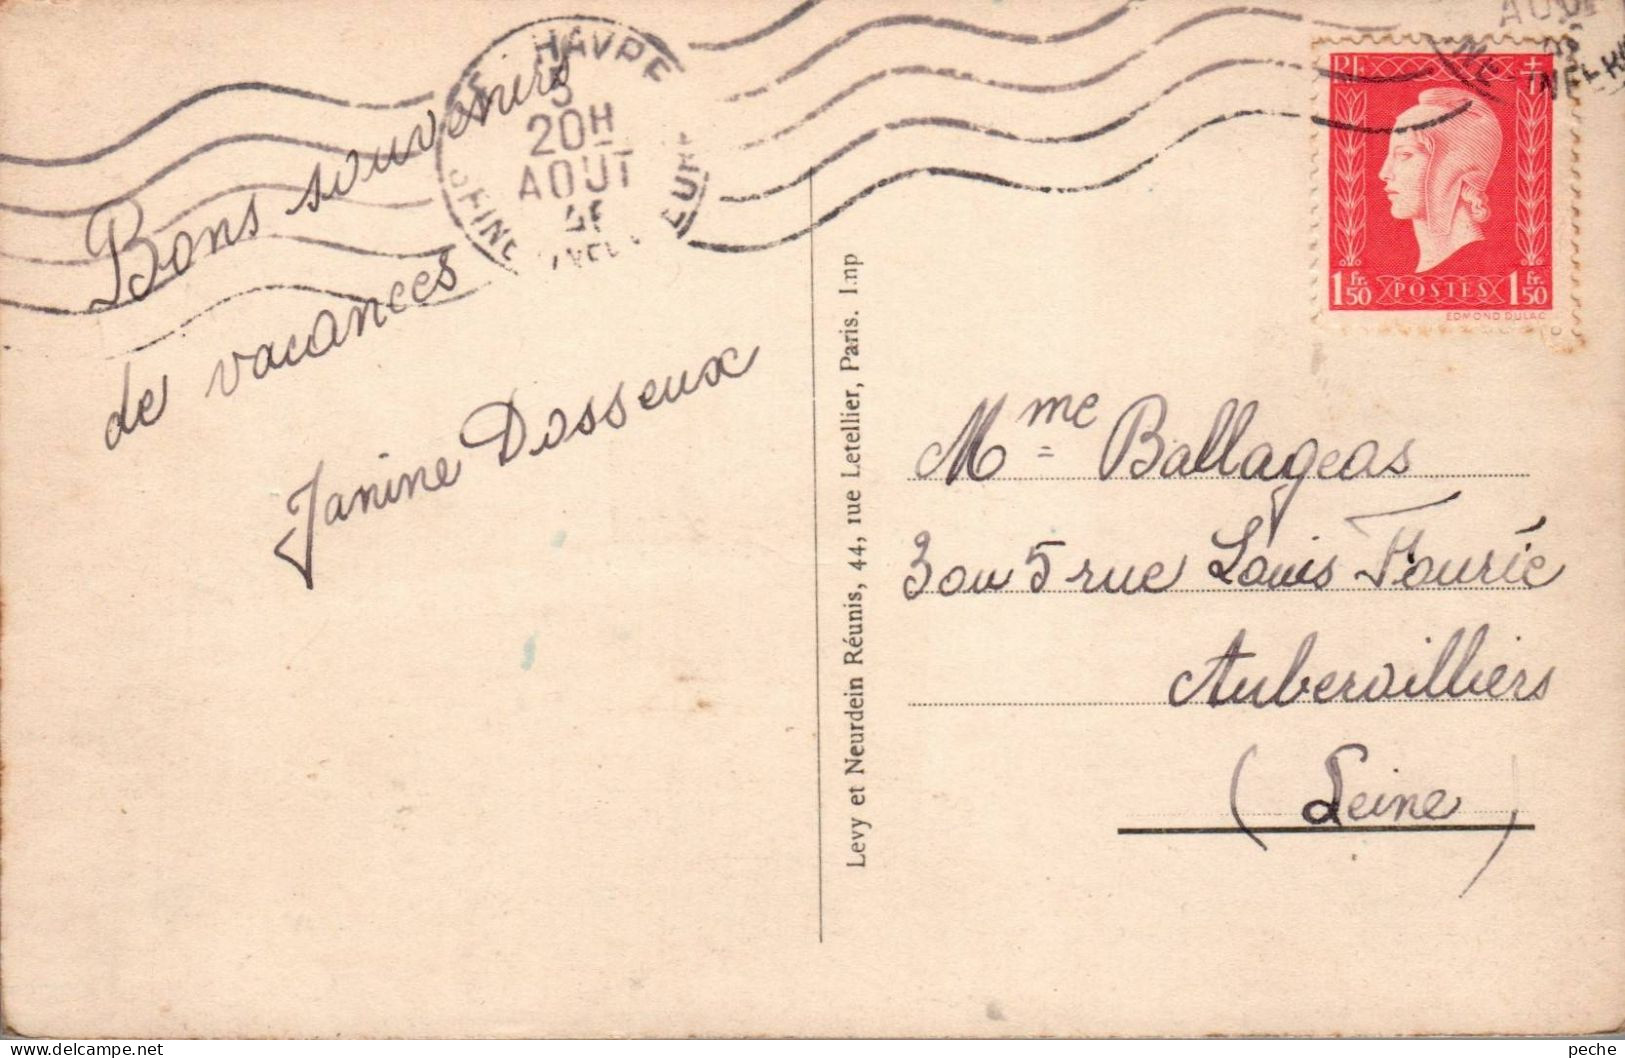 LE HAVRE
5
20H
AOUT
SEINE
Bons souvenirs
de vacances
Janine Dosseux
Levy et Neurdein Réunis, 44, rue Letellier, Paris. Imp
AOUT
RF
1Fr.50 POSTES 1Fr.50
EDMOND DULAC
Mme Ballageas
3 ou 5 rue Louis Fourié
Aubervilliers
(Seine)
peche